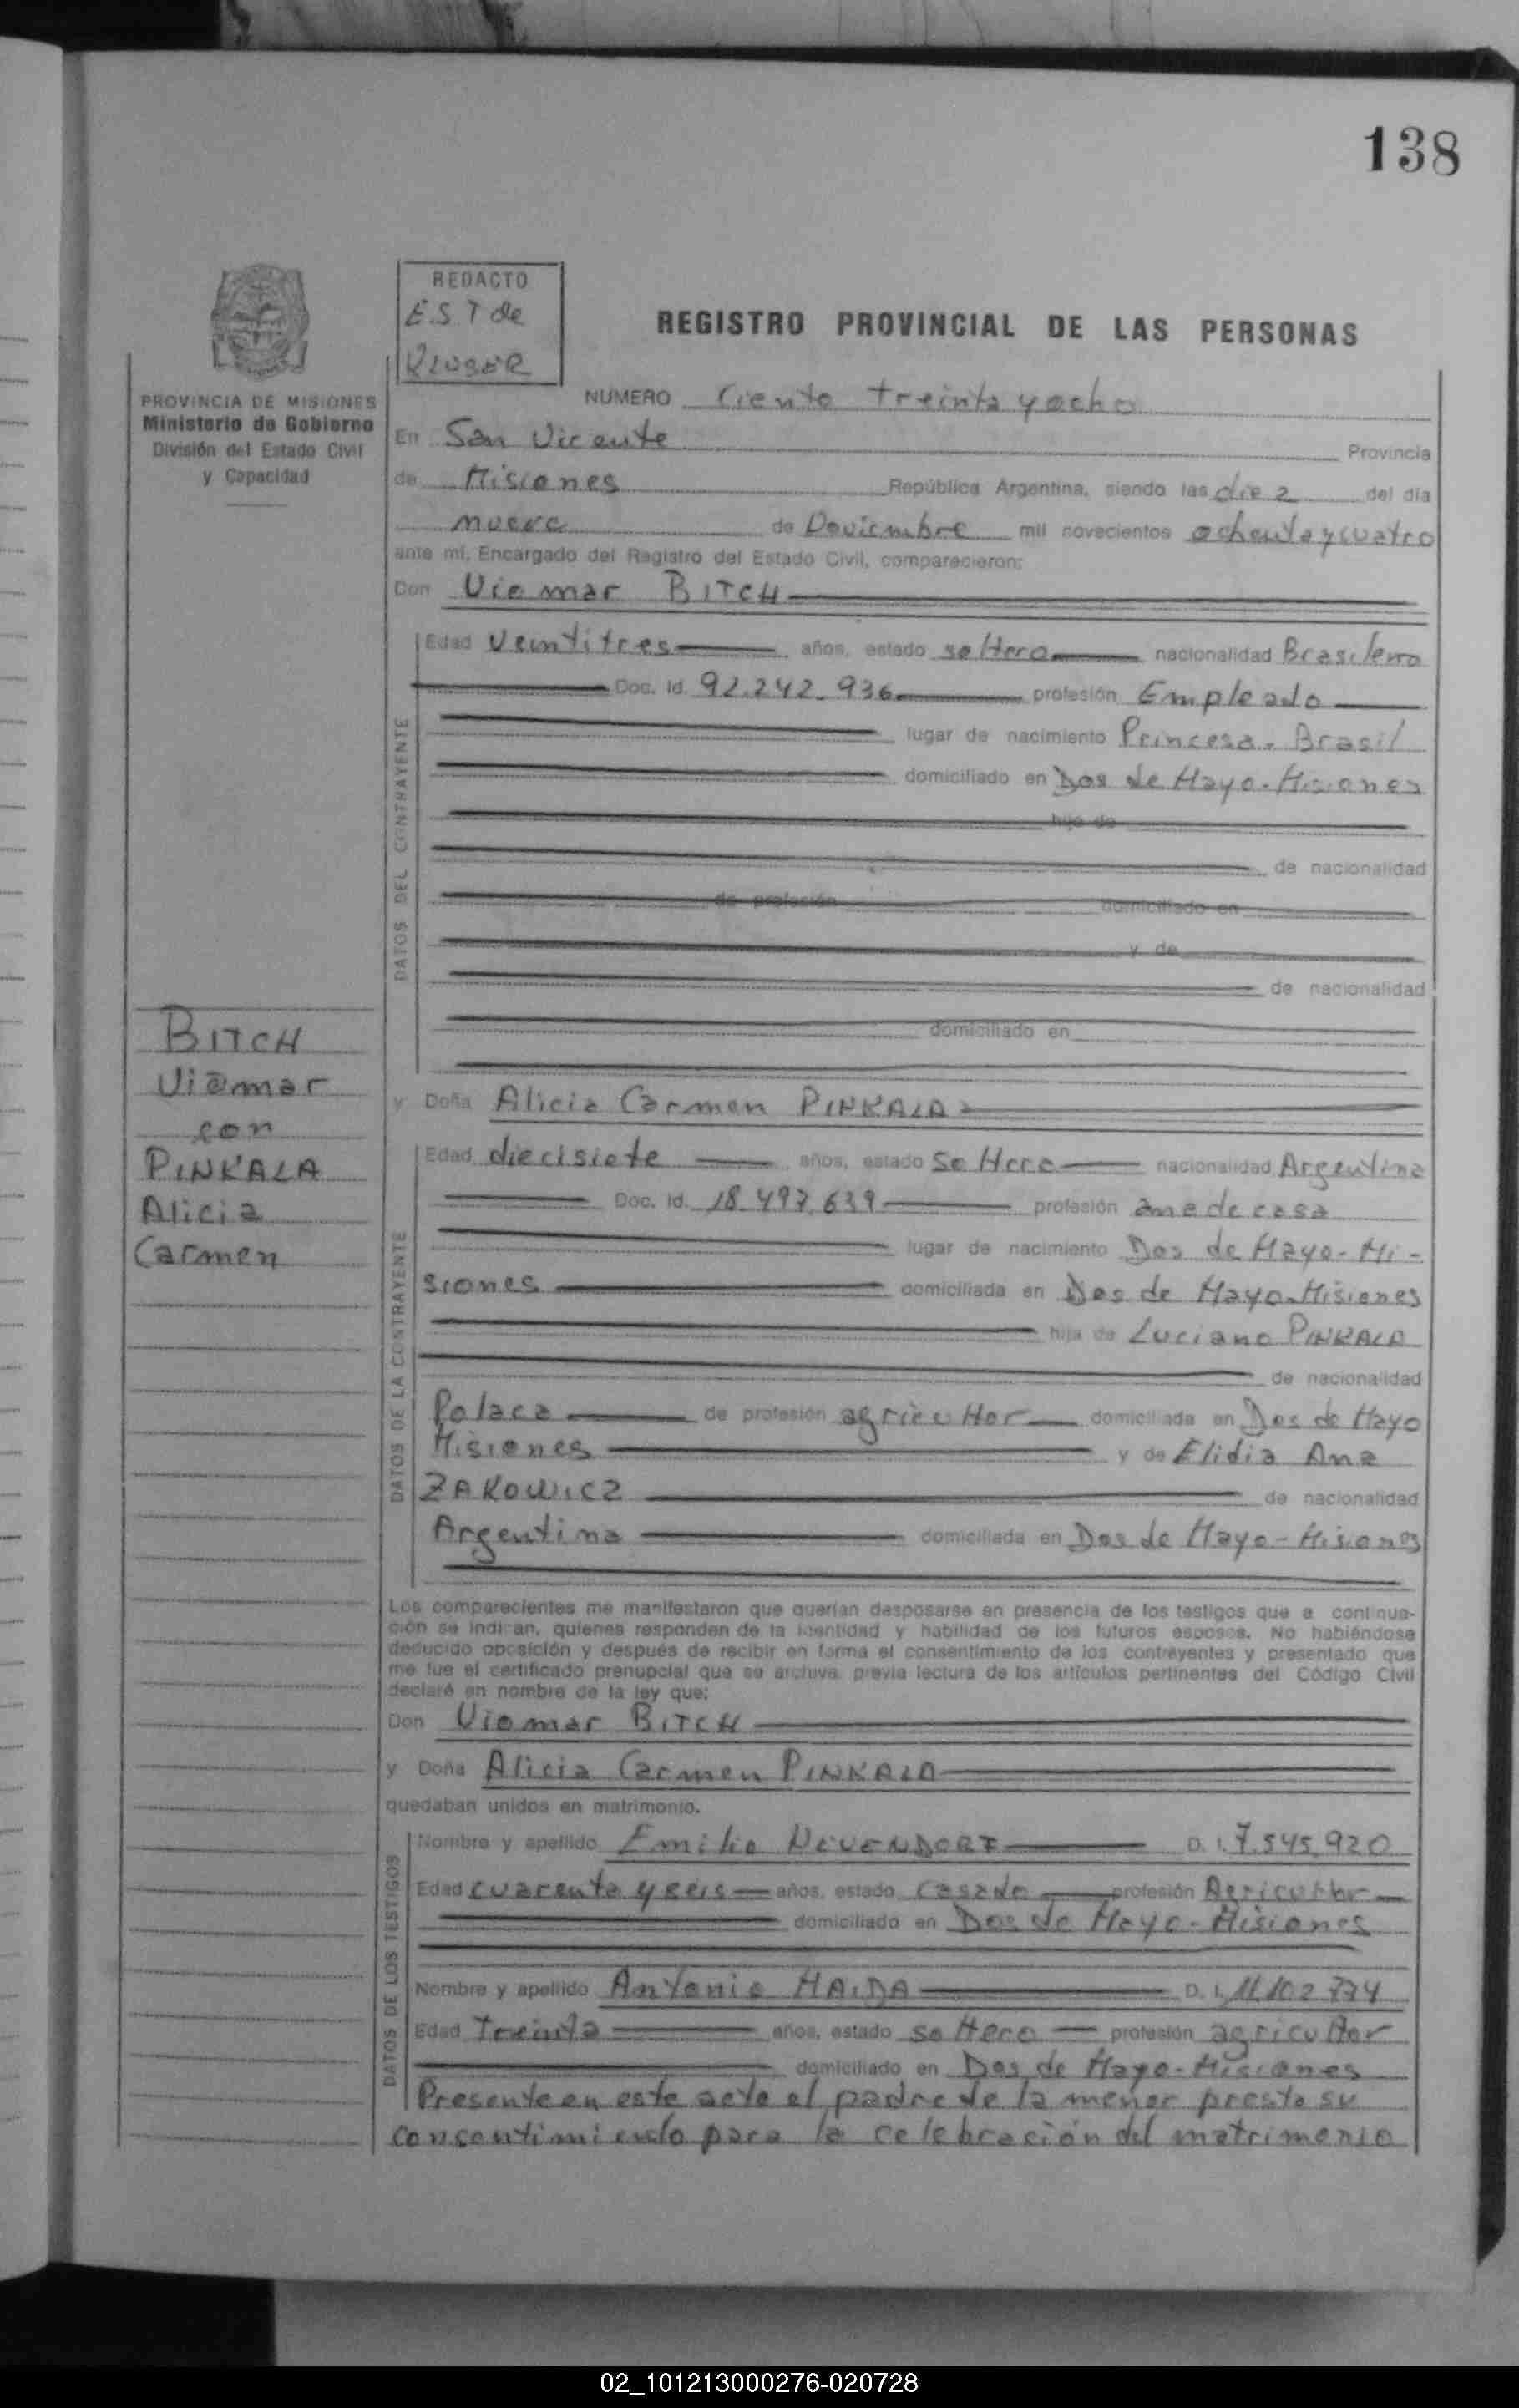 138
REDACTO
E.S.T de
KLUGER
REGISTRO PROVINCIAL DE LAS PERSONAS
PROVINCIA DE MISIONES
Ministerio de Gobierno
División del Estado Civil
y Capacidad
NUMERO Ciento treinta y ocho
En San Vicente Provincia
de Misiones República Argentina, siendo las diez del día
nueve de Noviembre mil novecientos ochenta y cuatro
ante mí, Encargado del Registro del Estado Civil, comparecieron:
Don Viomar BITCH
DATOS DEL CONTRAYENTE
Edad Veintitres años, estado soltero nacionalidad Brasilera
Doc. Id. 92.242.936 profesión Empleado
lugar de nacimiento Princesa. Brasil
domiciliado en Dos de Mayo. Misiones
hijo de
de nacionalidad
de profesión domiciliado en
y de
de nacionalidad
domiciliado en
BITCH
Viomar
con
PINKALA
Alicia
Carmen
y Doña Alicia Carmen PINKALA
DATOS DE LA CONTRAYENTE
Edad diecisiete años, estado Soltera nacionalidad Argentina
Doc. Id. 18.497.639 profesión ama de casa
lugar de nacimiento Dos de Mayo-Mi-
siones domiciliada en Dos de Mayo-Misiones
hija de Luciano PINKALA
de nacionalidad
Polaca de profesión agricultor domiciliada en Dos de Mayo
Misiones y de Elidia Ana
ZAKOWICZ de nacionalidad
Argentina domiciliada en Dos de Mayo-Misiones
Los comparecientes me manifestaron que querían desposarse en presencia de los testigos que a continua-
ción se indican, quienes responden de la identidad y habilidad de los futuros esposos. No habiéndose
deducido oposición y después de recibir en forma el consentimiento de los contrayentes y presentado que
me fue el certificado prenupcial que se archiva previa lectura de los artículos pertinentes del Código Civil
declaré en nombre de la ley que:
Don Viomar BITCH
y Doña Alicia Carmen PINKALA
quedaban unidos en matrimonio.
DATOS DE LOS TESTIGOS
Nombre y apellido Emilio NEUENDORF D. I. 7.545.920
Edad cuarenta y seis años, estado casado profesión Agricultor
domiciliado en Dos de Mayo-Misiones
Nombre y apellido Antonio HAIDA D. I. 11.102.774
Edad Treinta años, estado soltero profesión agricultor
domiciliado en Dos de Mayo-Misiones
Presente en este acto el padre de la menor presta su
consentimiento para la celebración del matrimonio
02_101213000276-020728